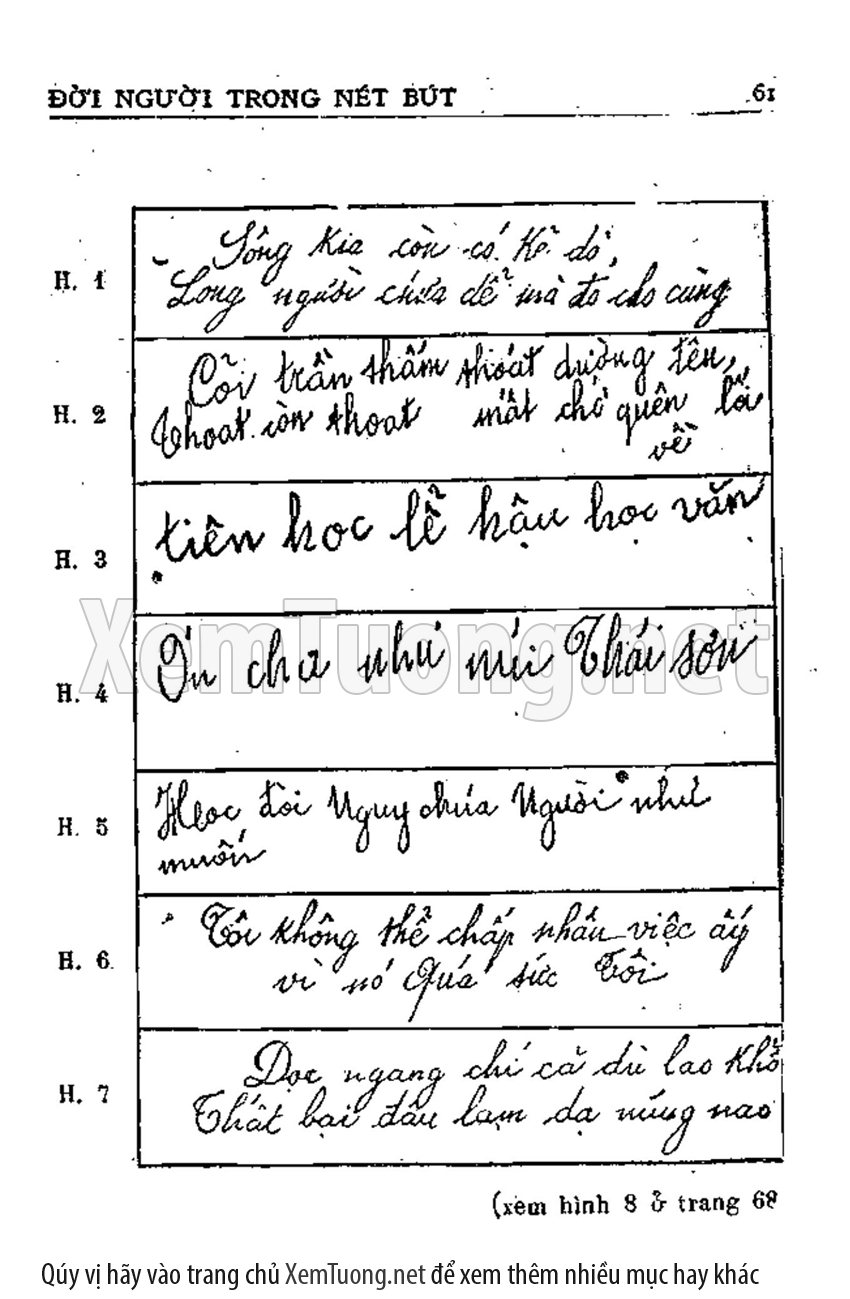 ĐỜI NGƯỜI TRONG NÉT BÚT 61
H. 1
Sông kia còn có kẻ dò,
Lòng người chưa dễ mà đo cho cùng
H. 2
Cõi trần thấm thoát dường tên,
Thoạt còn thoạt mất chớ quên lối
về
H. 3
tiên học lễ hậu học văn
H. 4
Ơn cha như núi Thái sơn
H. 5
Học đòi Nguy chưa Người như
muốn
H. 6
Tôi không thể chấp nhấn việc ấy
vì nó Quá sức Tôi
H. 7
Dọc ngang chí cả dù lao khổ
Thất bại đâu làm dạ núng nao
(xem hình 8 ở trang 68
XemTuong.net
Qúy vị hãy vào trang chủ XemTuong.net để xem thêm nhiều mục hay khác